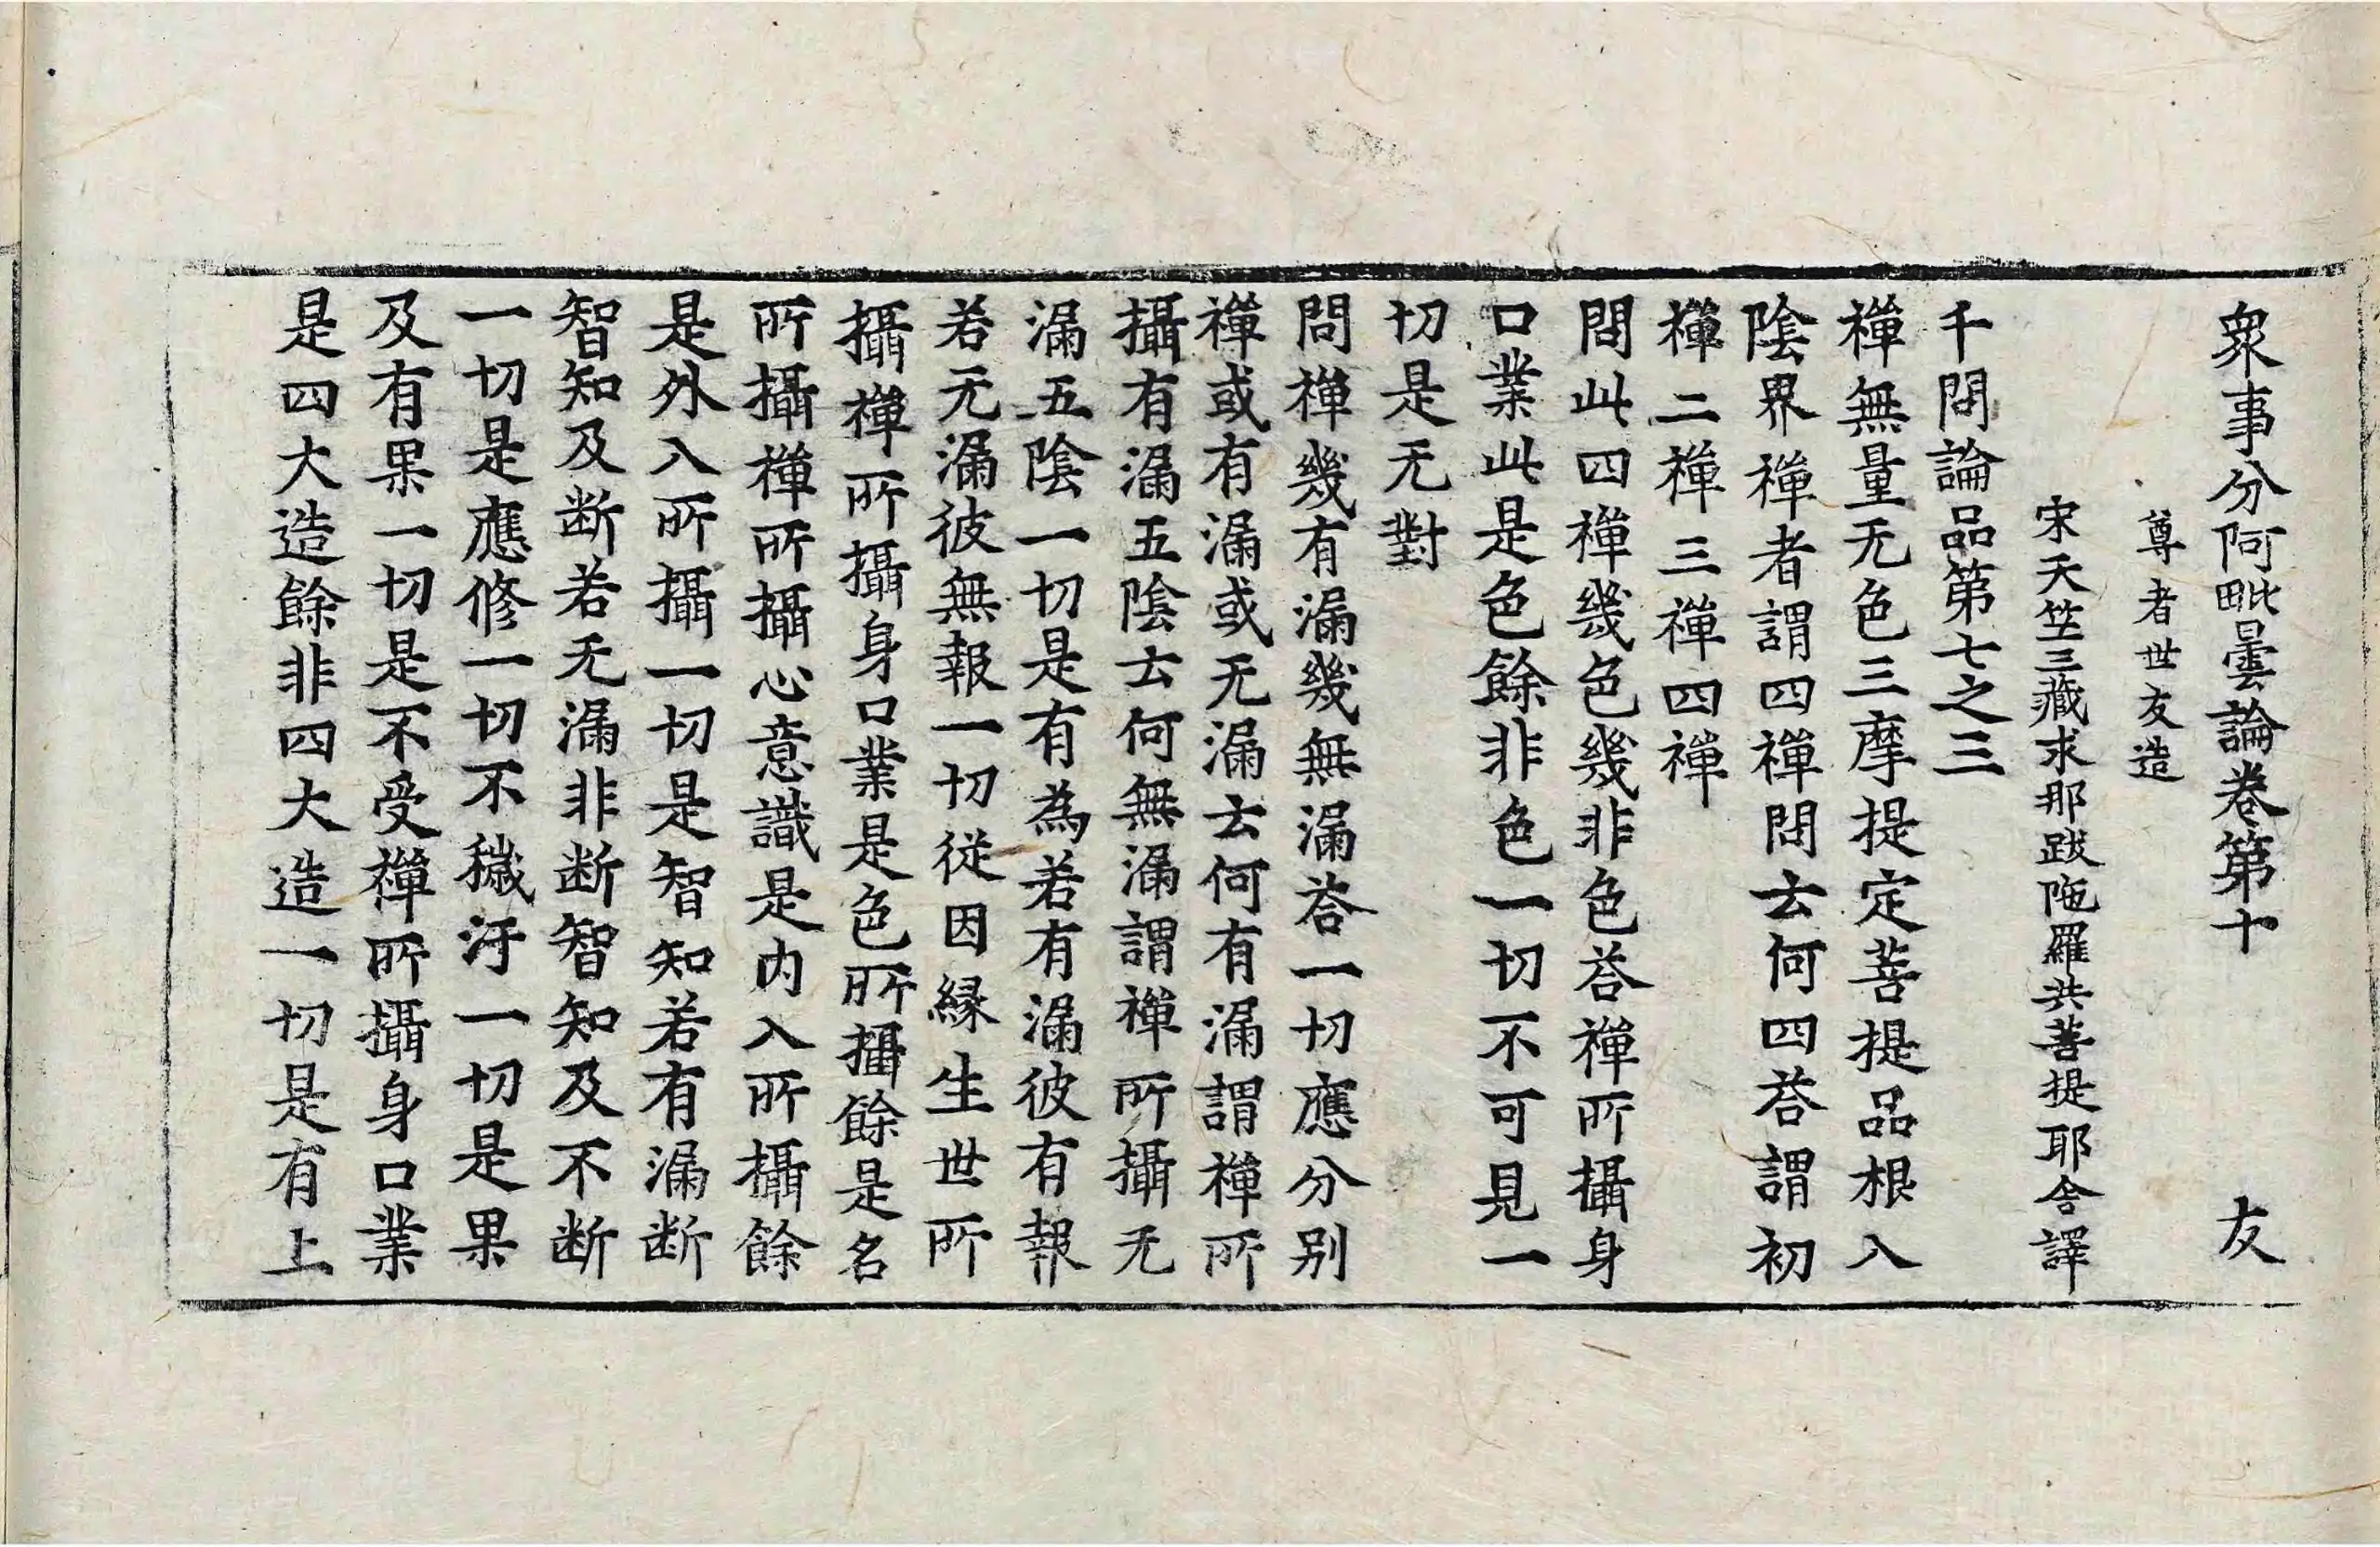 衆事分阿毗曇論卷第十　友
尊者世友造
宋天竺三藏求那跋陁羅共菩提耶舍譯
千問論品第七之三
禪無量无色三摩提定菩提品根入
陰界禪者謂四禪問云何四荅謂初
禪二禪三禪四禪
問此四禪幾色幾非色荅禪所攝身
口業此是色餘非色一切不可見一
切是无對
問禪幾有漏幾無漏荅一切應分别
禪或有漏或无漏云何有漏謂禪所
攝有漏五陰云何無漏謂禪所攝无
漏五陰一切是有為若有漏彼有報
若无漏彼無報一切従因縁生世所
攝禪所攝身口業是色所攝餘是名
所攝禪所攝心意識是内入所攝餘
是外入所攝一切是智知若有漏断
智知及断若无漏非断智知及不断
一切是應修一切不穢汙一切是果
及有果一切是不受禪所攝身口業
是四大造餘非四大造一切是有上